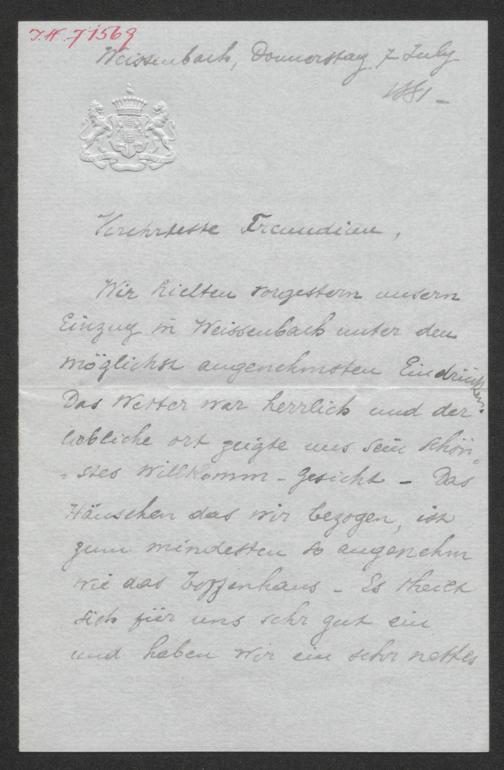 I.N. 71569
Weissenbach, Donnerstag 7 July
1881 –
Verehrteste Freundinn,
Wir hielten vorgestern unsern
Einzug in Weissenbach unter den
möglichst angenehmsten Eindrücken.
Das Wetter war herrlich und der
liebliche Ort zeigte uns sein schön-
-stes Willkomm-Gesicht – Das
Häuschen das wir bezogen, ist
zum mindesten so angenehm
wie das – Es theilt
sich für uns sehr gut ein
und haben wir ein sehr nettes